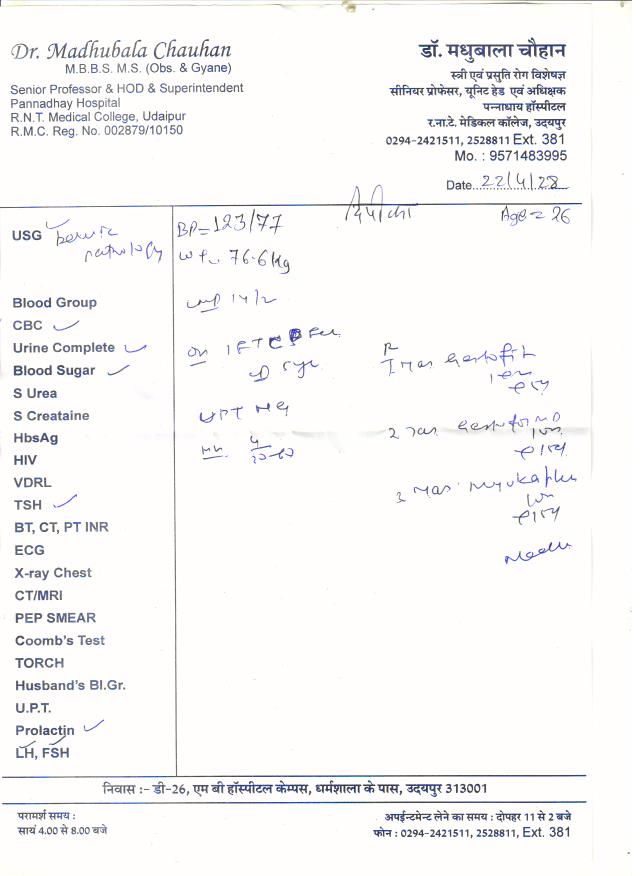 Dr. Madhubala Chauhan
M.B.B.S. M.S. (Obs. & Gyane)
Senior Professor & HOD & Superintendent
Pannadhay Hospital
R.N.T. Medical College, Udaipur
R.M.C. Reg. No. 002879/10150
डॉ. मधुबाला चौहान
स्त्री एवं प्रसुति रोग विशेषज्ञ
सीनियर प्रोफेसर, यूनिट हेड एवं अधिक्षक
पन्नाधाय हॉस्पीटल
र.ना.टे. मेडिकल कॉलेज, उदयपुर
0294-2421511, 2528811 Ext. 381
Mo. : 9571483995
Date 22/4/28
Age = 26
BP=123/77
USG
pathology
wt. 76.6 kg
Blood Group
LMP 14/2
CBC
Urine Complete
on
Blood Sugar
S Urea
S Creataine
UPT
HbsAg
HIV
VDRL
TSH
BT, CT, PT INR
ECG
X-ray Chest
CT/MRI
PEP SMEAR
Coomb's Test
TORCH
Husband's Bl.Gr.
U.P.T.
Prolactin
LH, FSH
निवास :- डी-26, एम बी हॉस्पीटल केम्पस, धर्मशाला के पास, उदयपुर 313001
परामर्श समय :
सायं 4.00 से 8.00 बजे
अपॉईन्टमेन्ट लेने का समय : दोपहर 11 से 2 बजे
फोन : 0294-2421511, 2528811, Ext. 381